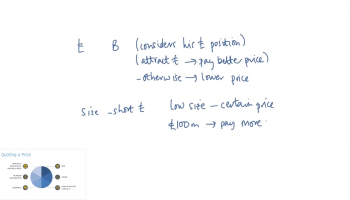 £ B (considers his £ position)
(attract £ → pay better price)
- otherwise → lower price
size - short £ low size - certain price
£100m → pay more
Quoting a Price